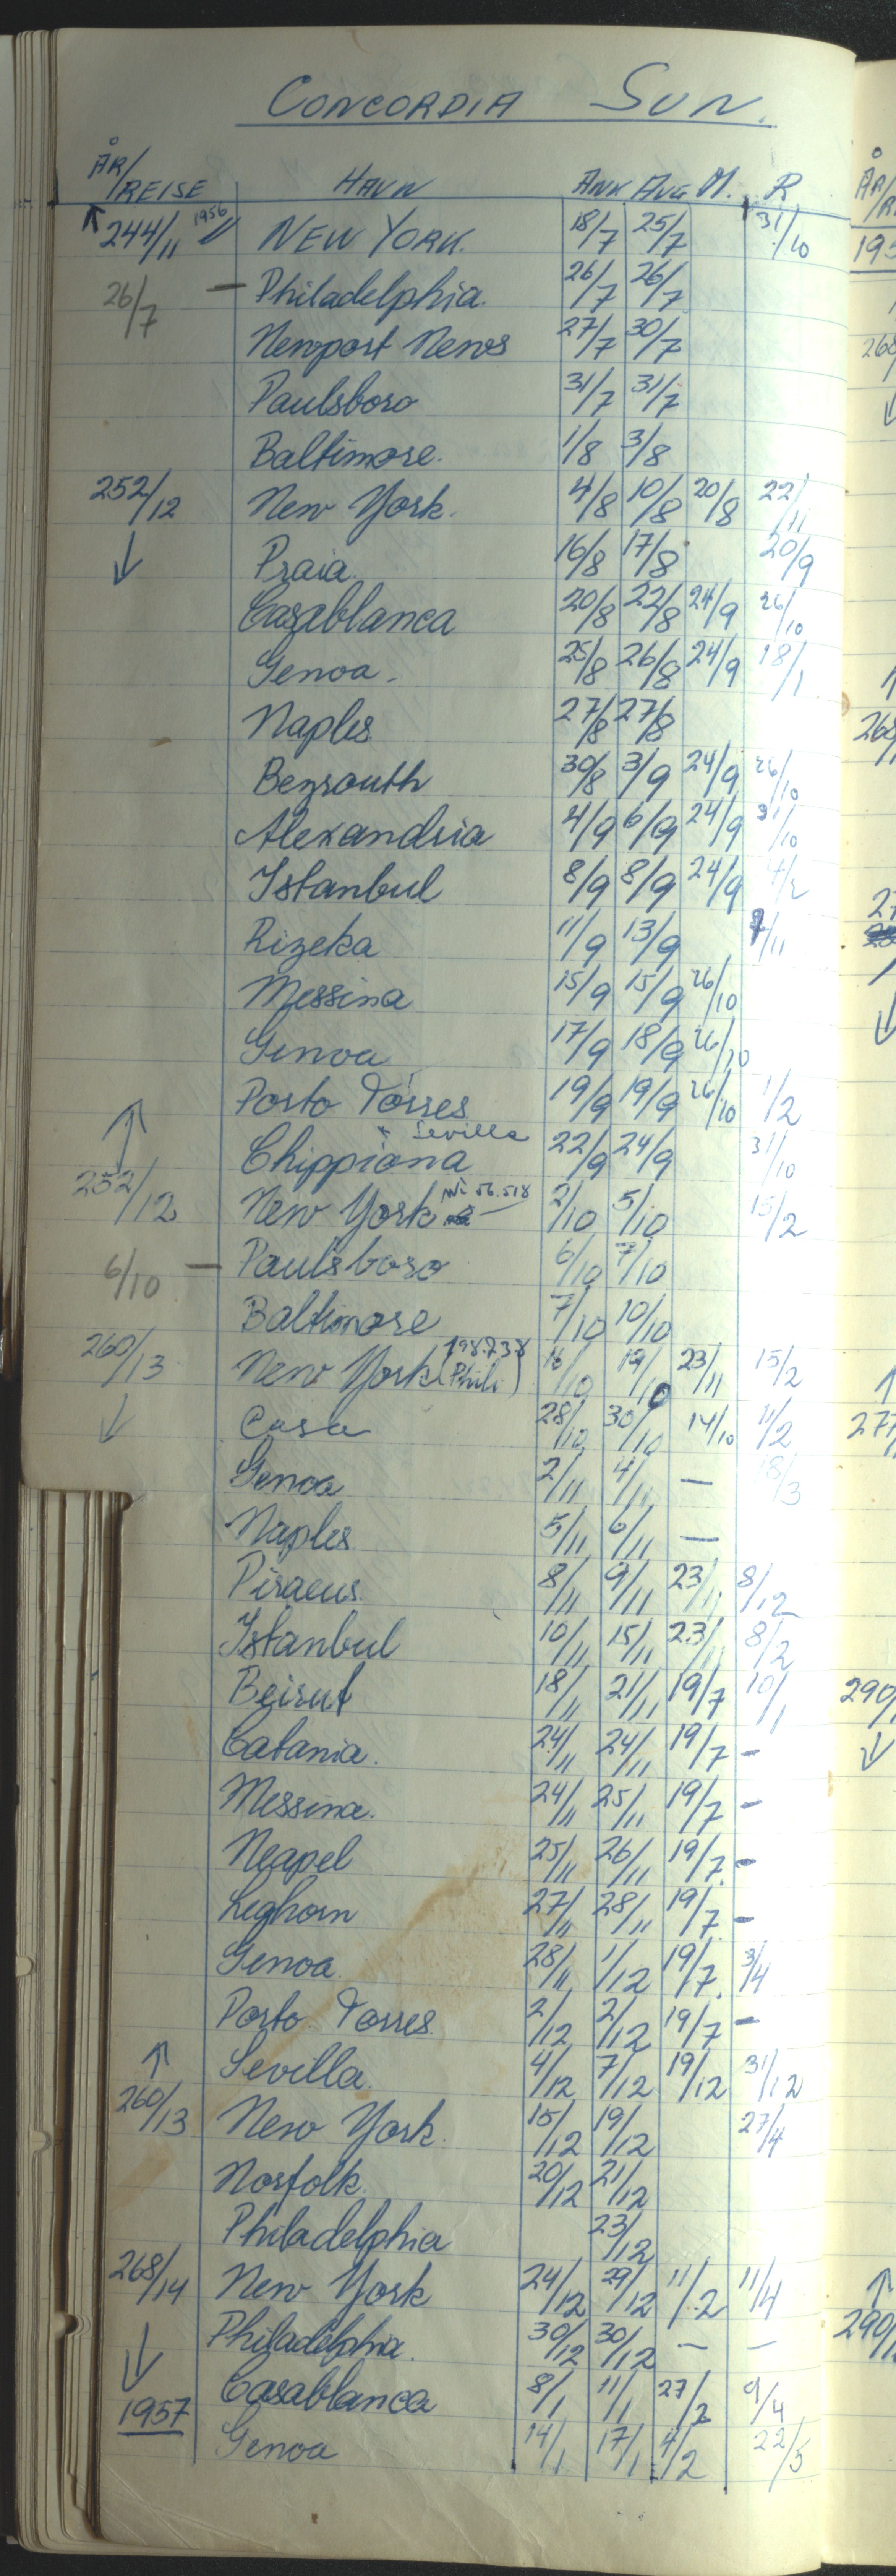 CONCORDIA SUN.
ÅR/REISE HAVN ANK AVG M. R
↑ 244/11 1956 NEW YORK. 18/7 25/7 31/10
26/7 — Philadelphia. 26/7 26/7
Newport News 27/7 30/7
Paulsboro 31/7 31/7
Baltimore. 1/8 3/8
252/12 New York. 4/8 10/8 20/8 22/11
↓ Praia 16/8 17/8 20/9
Casablanca 20/8 22/8 24/9 26/10
Genoa. 25/8 26/8 24/9 18/1
Naples 27/8 27/8
Beyrouth 30/8 3/9 24/9 26/10
Alexandria 4/9 6/9 24/9 31/10
Istanbul 8/9 8/9 24/9 4/2
Rizeka 11/9 13/9 7/11
Messina 15/9 15/9 26/10
Genoa 17/9 18/9 26/10
↑ Porto Torres 19/9 19/9 26/10 1/2
+ Sevilla
Chippiona 22/9 24/9 31/10
252/12 New York 56.518 2/10 5/10 15/2
6/10 — Paulsboro 6/10 7/10
Baltimore 7/10 10/10
260/13 New York (198.738 Phili) 16/10 19/10 23/11 15/2
↓ Casa 28/10 30/10 14/10 11/2
Genoa 2/11 4/11 — 18/3
Naples 5/11 6/11 —
Piraeus 8/11 9/11 23/11 8/12
Istanbul 10/11 15/11 23/11 8/2
Beirut 18/11 21/11 19/7 10/1
Catania. 24/11 24/11 19/7 -
Messina. 24/11 25/11 19/7 -
Neapel 25/11 26/11 19/7 -
Leghorn 27/11 28/11 19/7 -
Genoa 28/11 1/12 19/7 3/4
Porto Torres 2/12 2/12 19/7 -
↑ Sevilla. 4/12 7/12 19/12 31/12
260/13 New York. 15/12 19/12 27/4
Norfolk. 20/12 21/12
Philadelphia 23/12
268/14 New York 24/12 29/12 11/2 11/4
↓ Philadelphia. 30/12 30/12 — —
1957 Casablanca 8/1 11/1 27/2 9/4
Genoa 14/1 17/1 4/2 22/5